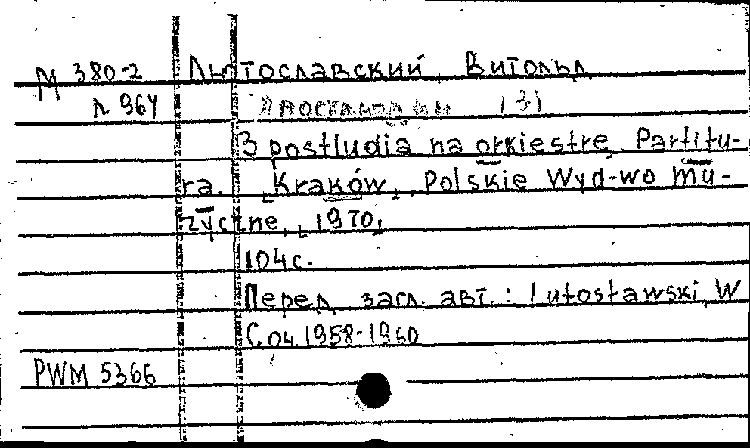 М 380-2 Лютославский, Витольд
Л 964 Постлюдии (3)
3 postludia na orkiestrę. Partitu-
ra. [Kraków], Polskie Wyd-wo Mu-
zyczne, [1970]
104 с.
Перед загл. авт.: Lutosławski, W
Соч. 1958-1960
PWM 5366